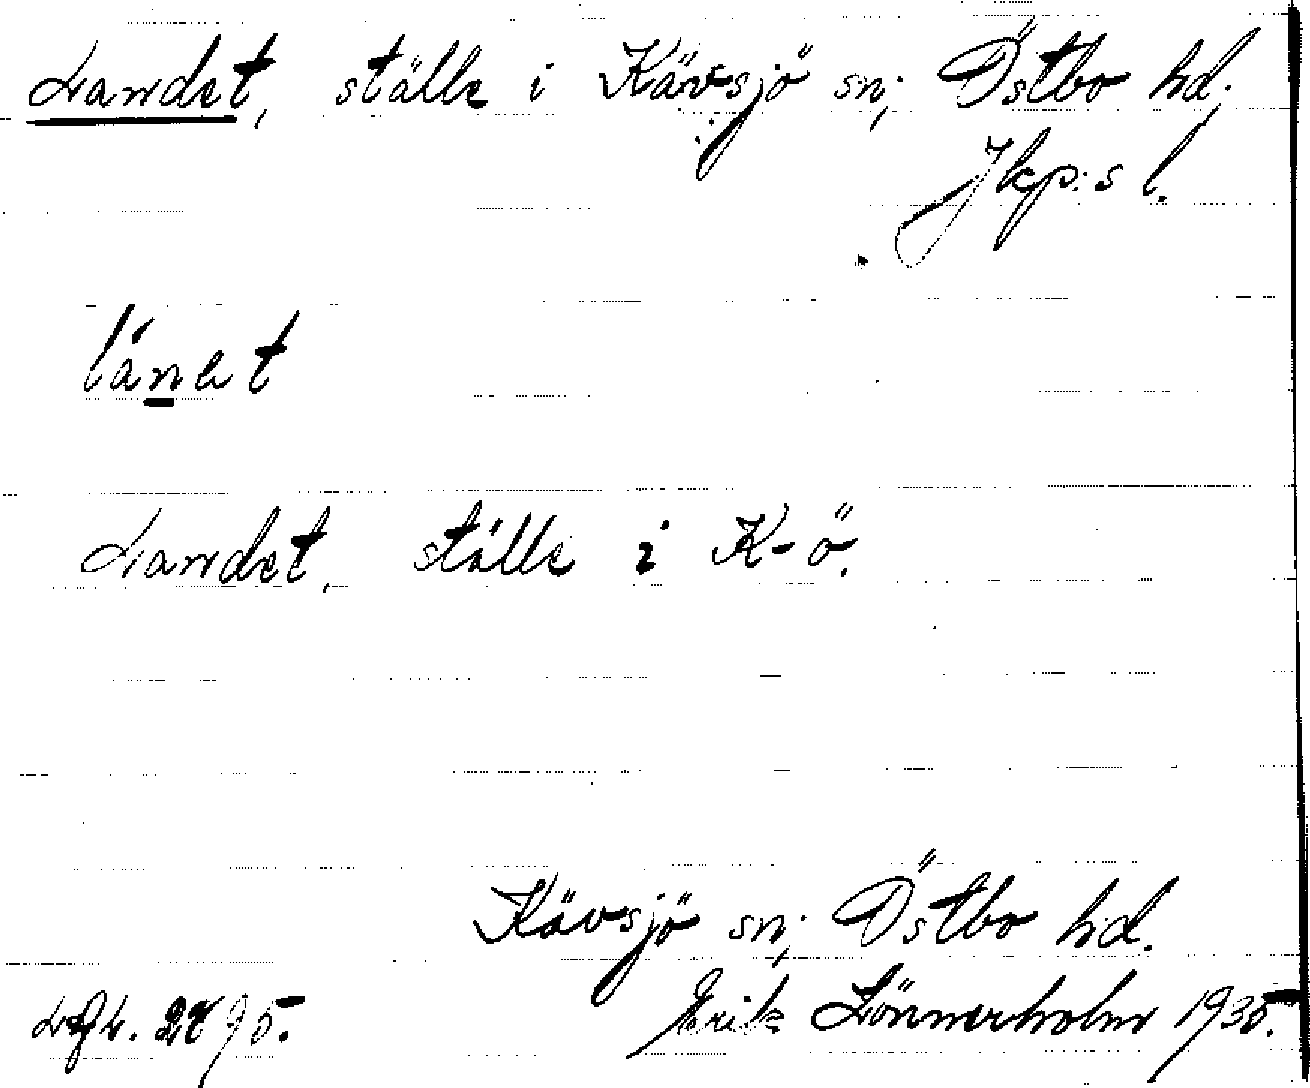 Landet, ställe i Kävsjö sn; Östbo hd;
Jkp:s l.
Landet, ställe i K-ö.
Kävsjö sn; Östbo hd.
Erik Lönnerholm 1935.